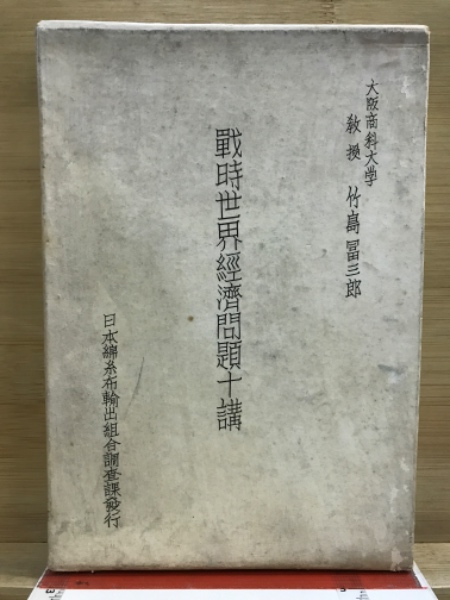 大阪商科大学
教授 竹島冨三郎
戰時世界經濟問題十講
日本綿糸布輸出組合調査課発行